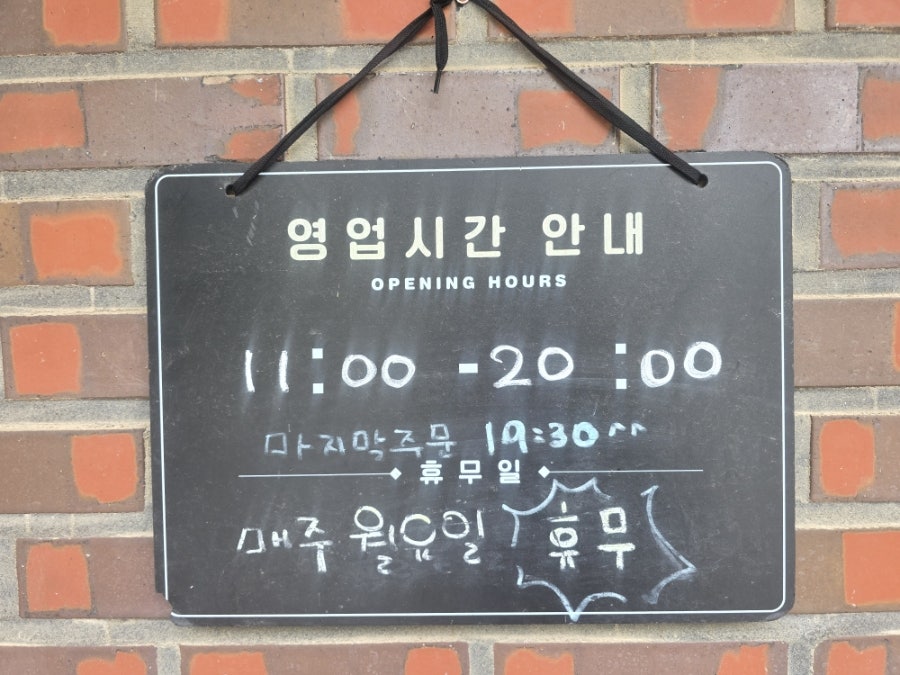 영업시간 안내
OPENING HOURS
11:00 - 20:00
마지막주문 19:30^^
휴무일
매주 월요일 휴무